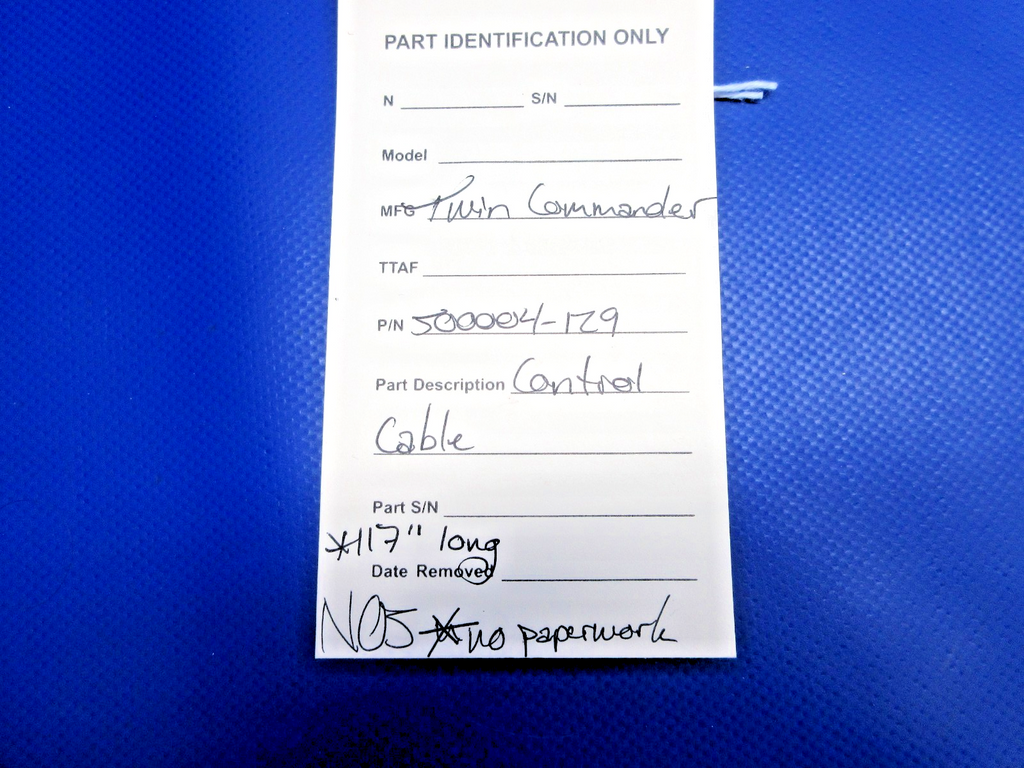 PART IDENTIFICATION ONLY
N S/N
Model
MFG Twin Commander
TTAF
P/N 500004-129
Part Description Control
Cable
Part S/N
*117" long
Date Removed
NOS * no paperwork